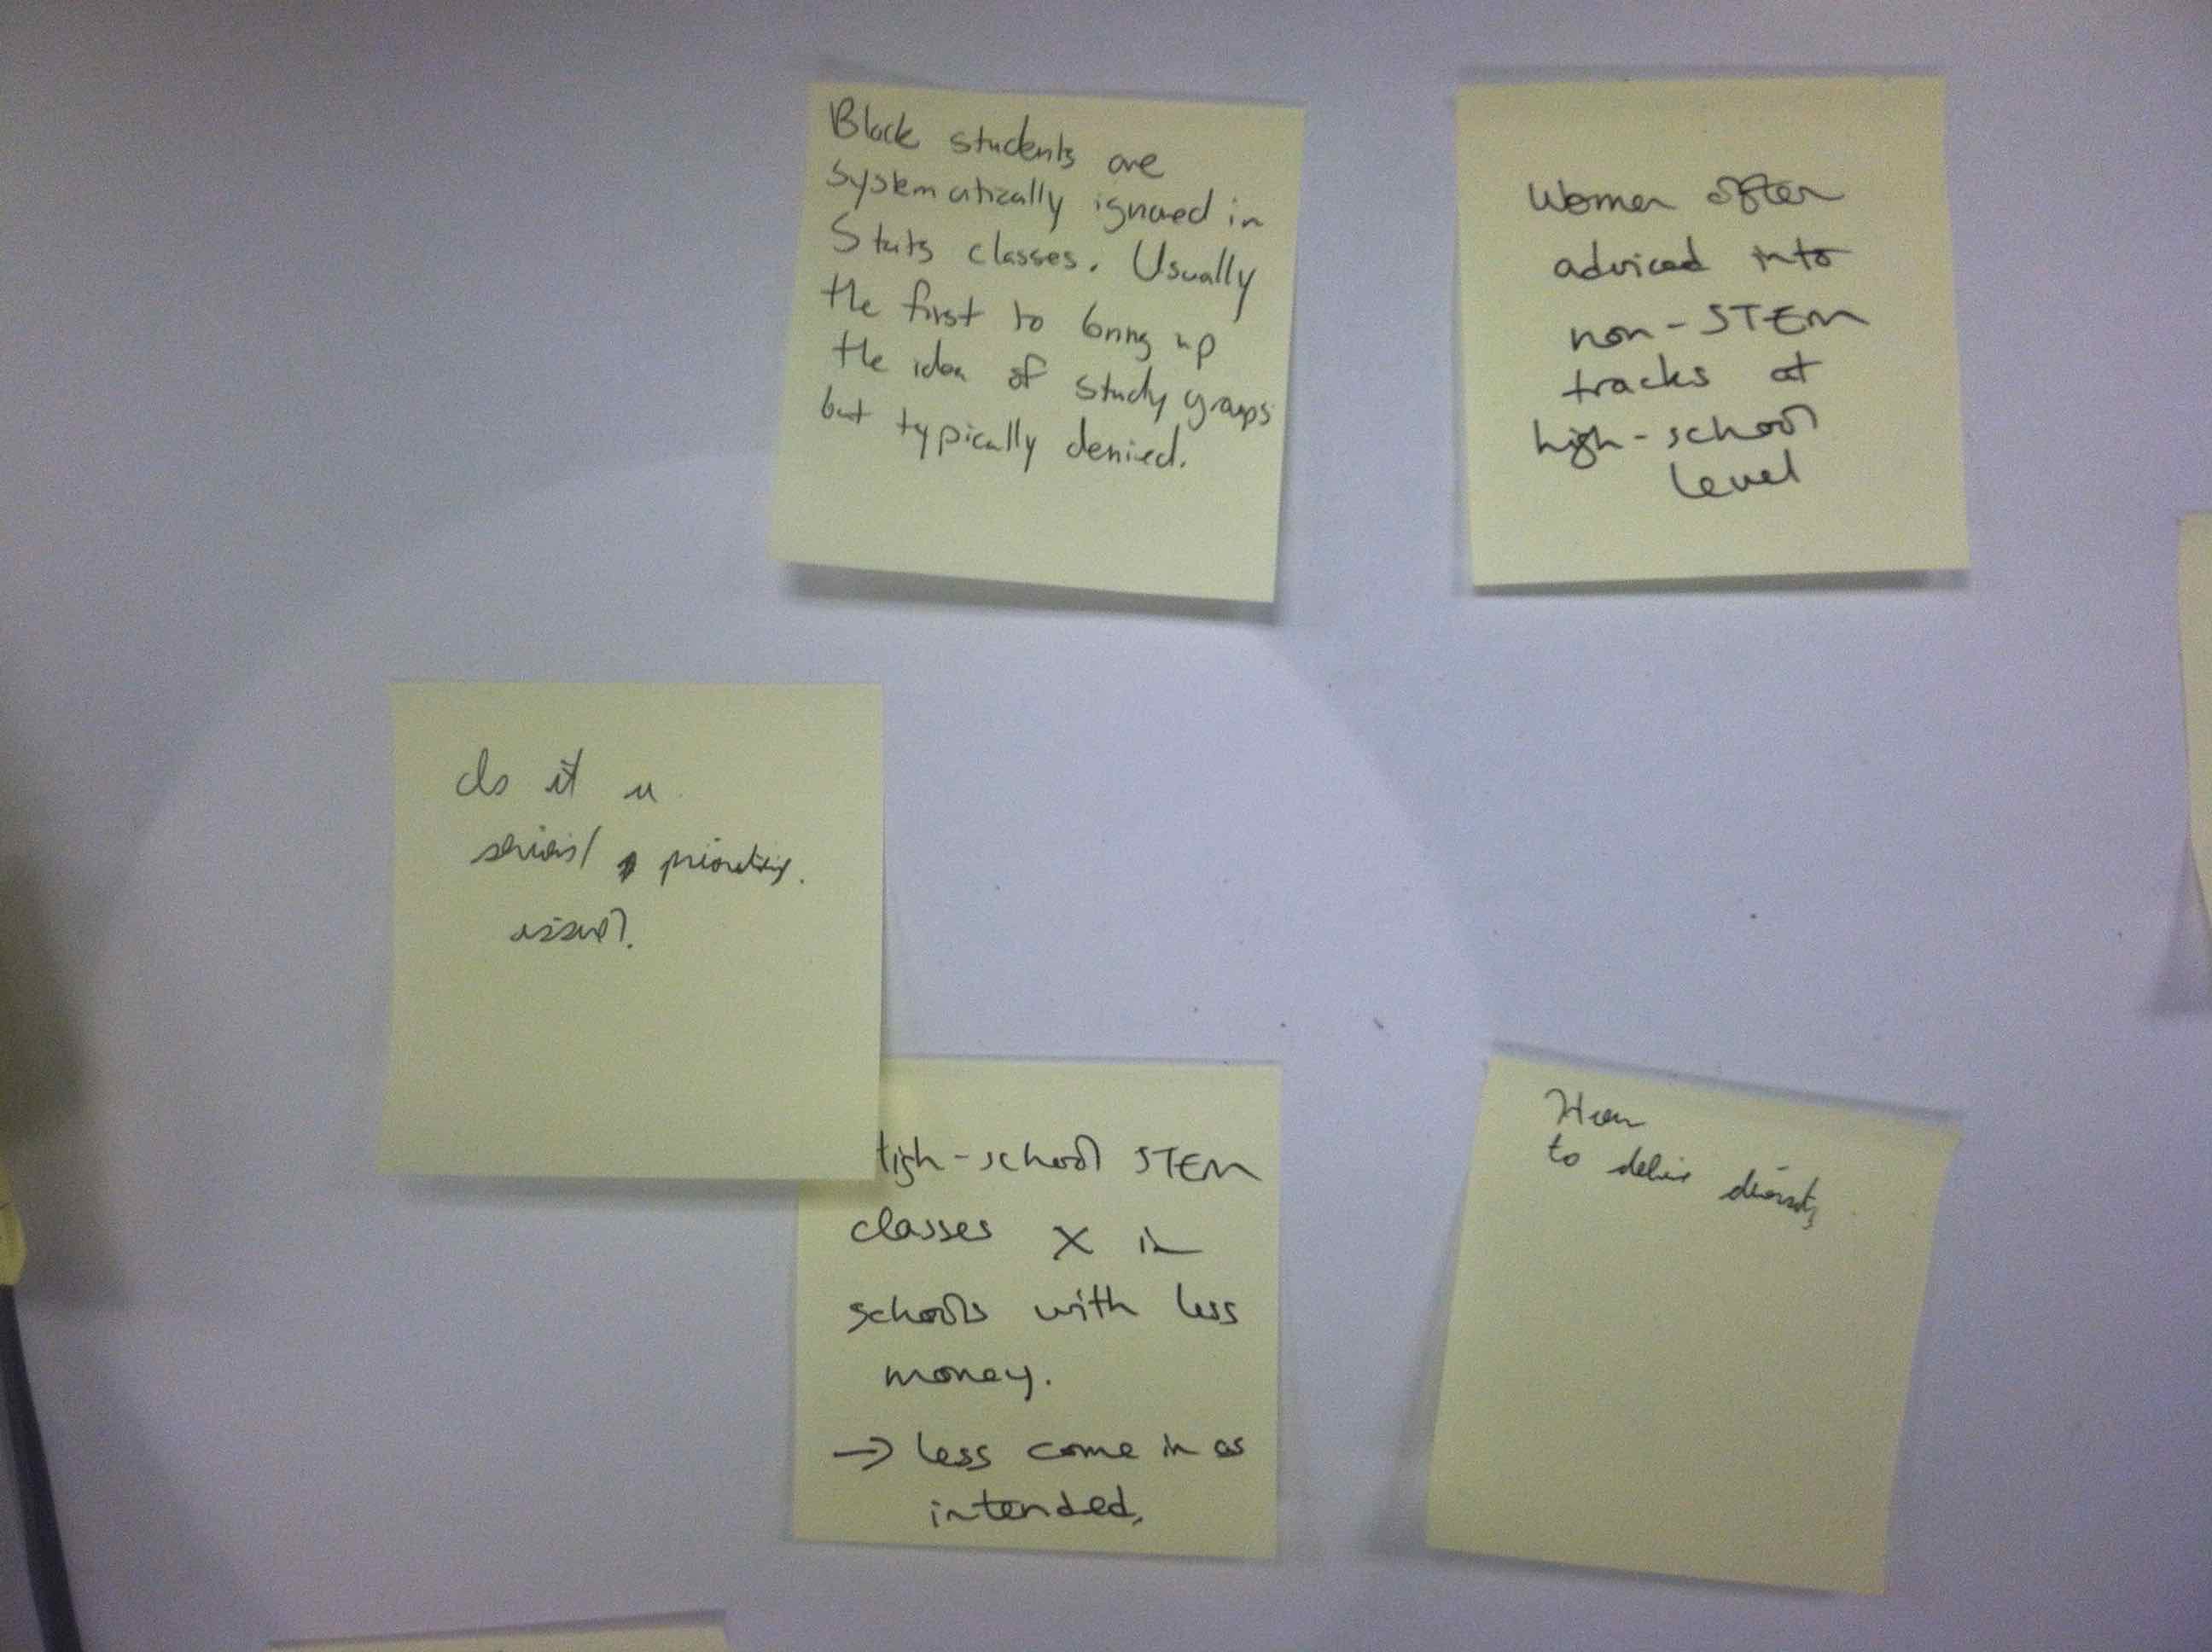 Black students are
systematically ignored in
Stats classes. Usually
the first to bring up
the idea of study groups
but typically denied.
Women often
adviced into
non-STEM
tracks at
high-school
level
Is it a
prioritizing
issue?
High-school STEM
classes X in
schools with less
money.
→ less come in as
intended.
How
to define diversity